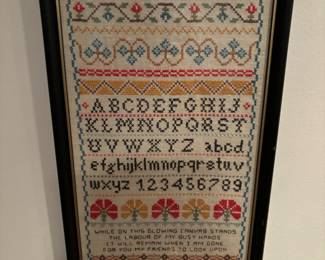 ABCDEFGHIJ
KLMNOPQRST
UVWXYZ abcd
efghijklmnopqrstuv
wxyz 123456789
WHILE ON THIS GLOWING CANVAS STANDS
THE LABOUR OF MY BUSY HANDS
IT WILL REMAIN WHEN I AM GONE
FOR YOU MY FRIENDS TO LOOK UPON